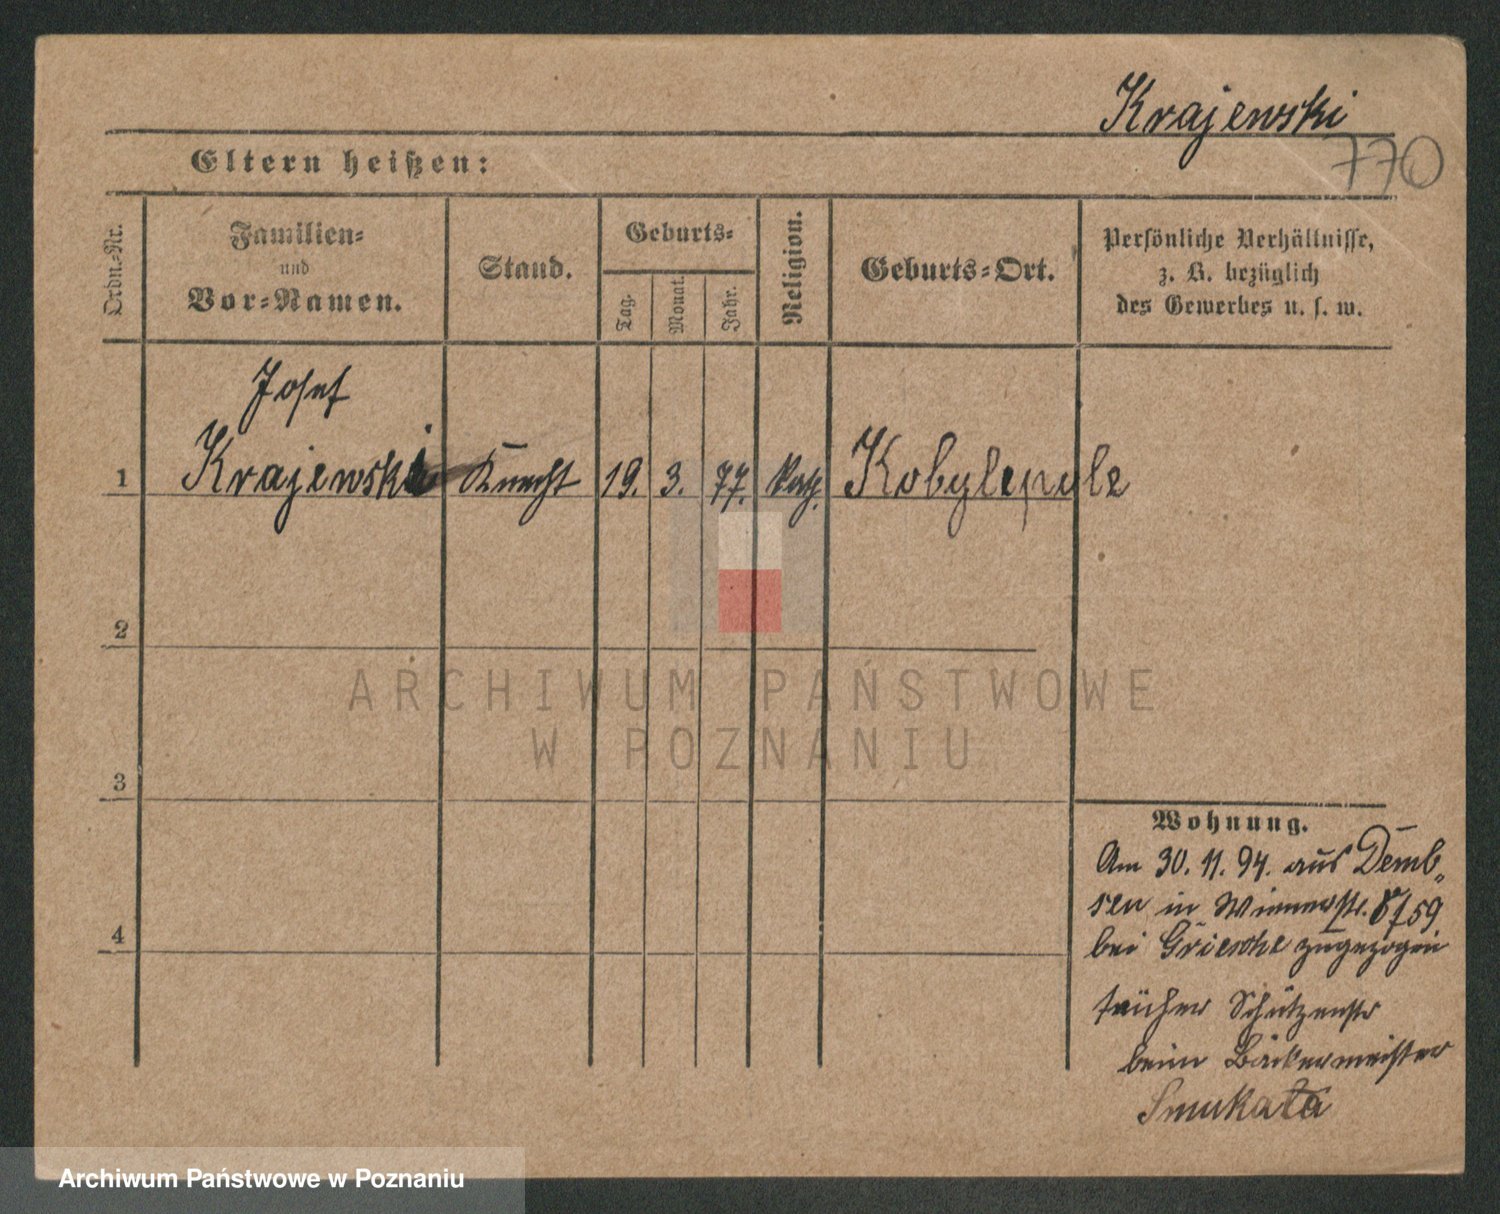 Krajewski
770
Eltern heißen:
Ordn.-Nr.
Familien-
und
Vor-Namen.
Stand.
Geburts-
Tag.
Monat.
Jahr.
Religion.
Geburts-Ort.
Persönliche Verhältnisse,
z. B. bezüglich
des Gewerbes u. s. w.
Josef
1 Krajewski Knecht 19. 3. 77. kath. Kobylepole
2
3
4
Wohnung.
Am 30. 11. 94. aus Demb-
sen in Wienerstr. 8/59
bei zugezogen
früher Schützenstr
beim Bäckermeister
Smukata
ARCHIWUM PAŃSTWOWE
W POZNANIU
Archiwum Państwowe w Poznaniu